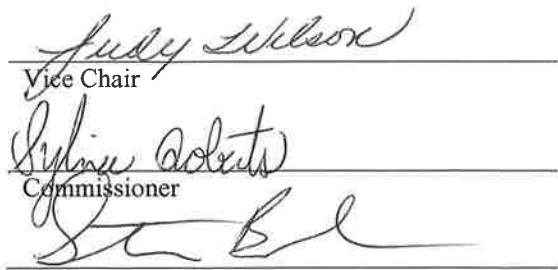 Judy Wilson
Vice Chair
Sylvia Roberts
Commissioner